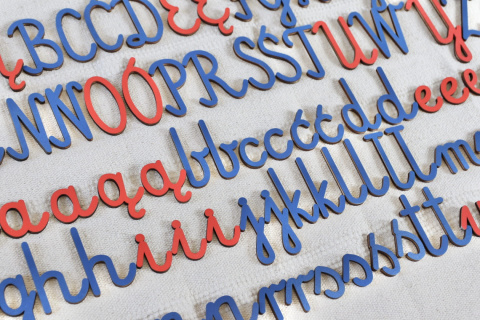 ĄBCĆDEĘFG
NŃOÓPRSŚTUWYZ
aaąąbbccććddeee
ghhiiijjkkllłłm
nrrssśśttu